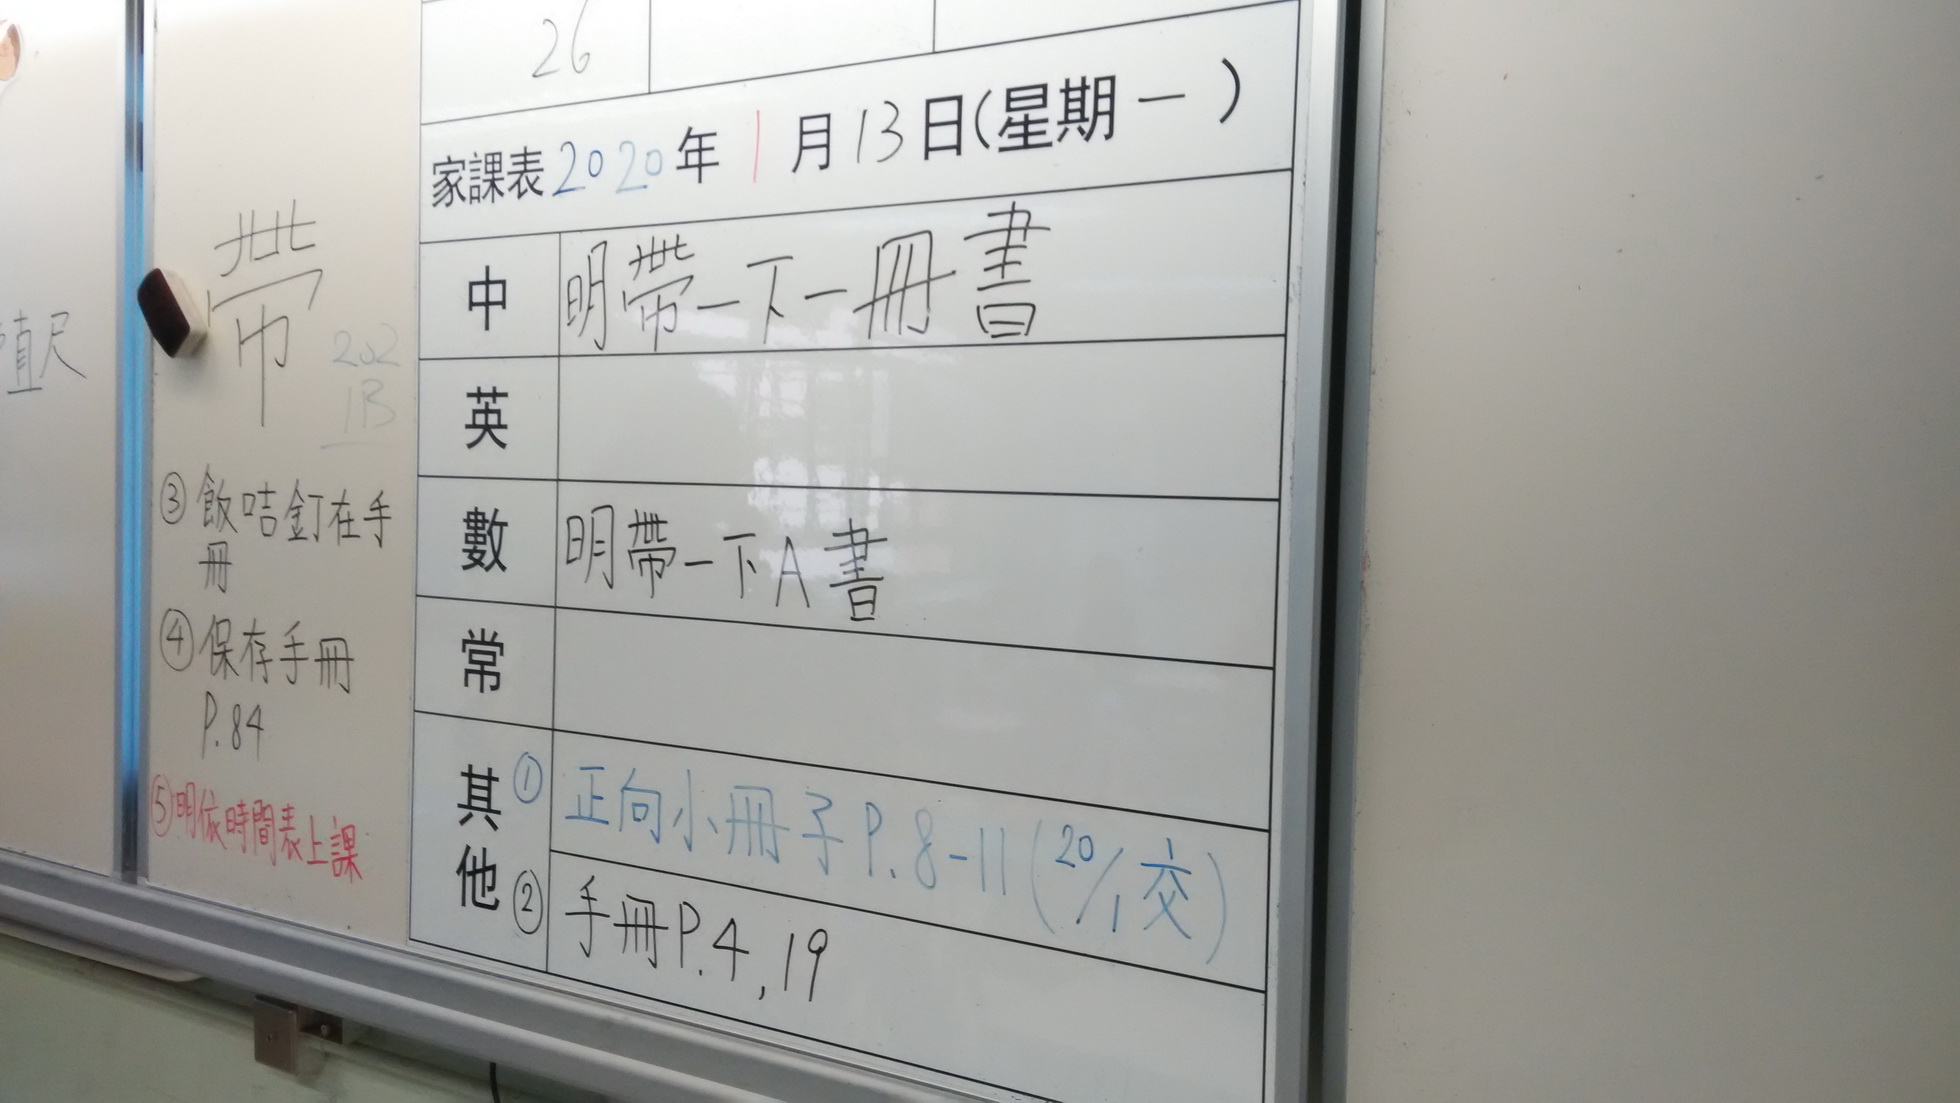 直尺
帶
202
1B
③ 飯咭釘在手
冊
④ 保存手冊
P.84
⑤明依時間表上課
26
家課表2020年1月13日(星期一)
中 明帶一下一冊書
英
數 明帶一下A書
常
其他
① 正向小冊子P.8-11(20/1交)
② 手冊P.4,19